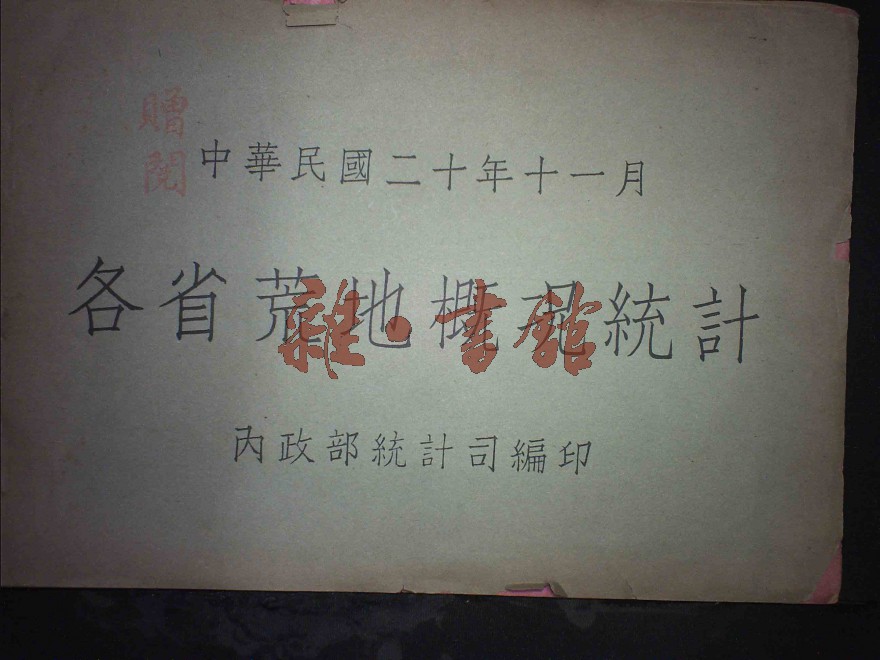 贈閱
中華民國二十年十一月
各省荒地概况統計
內政部統計司編印
雜·書館